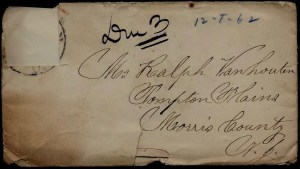 Due 3
12-5-62
Mr Ralph Vanhouten
Pompton Plains
Morris County
N. J.